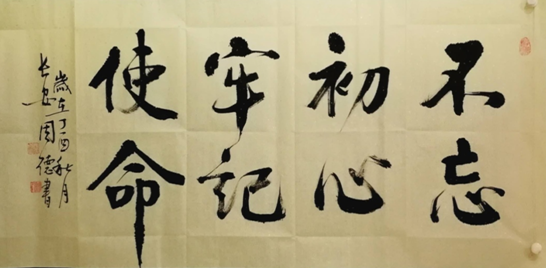 不忘
初心
牢记
使命
歲在丁酉秋月
长安周德書